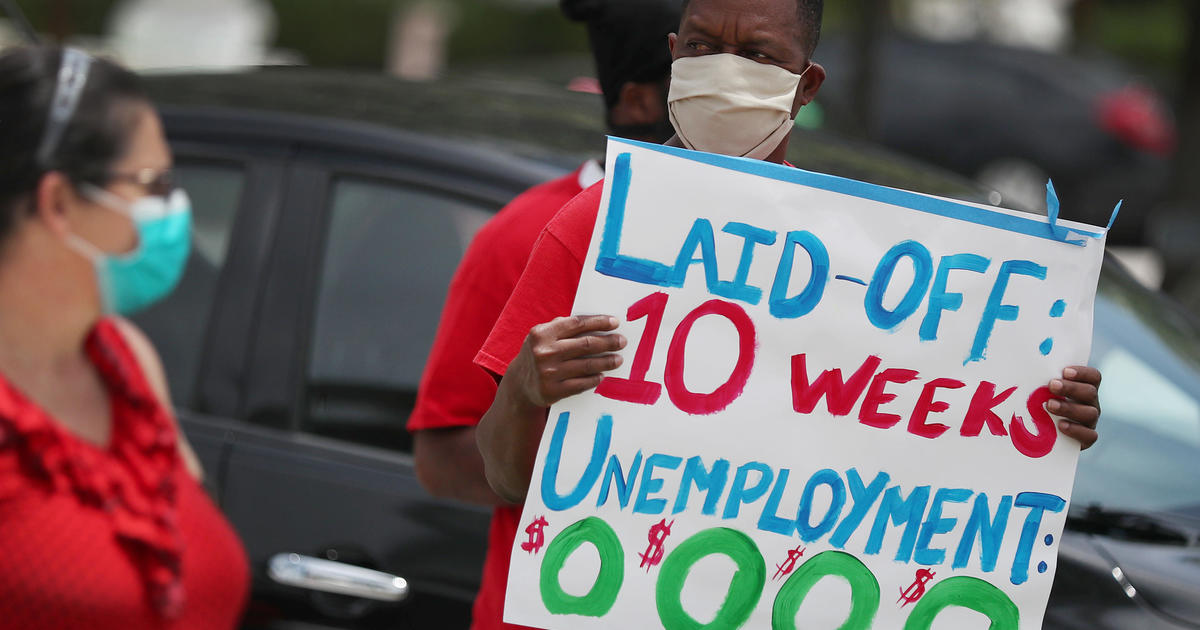 LAID-OFF:
10 WEEKS
UNEMPLOYMENT:
$0$0$0$0